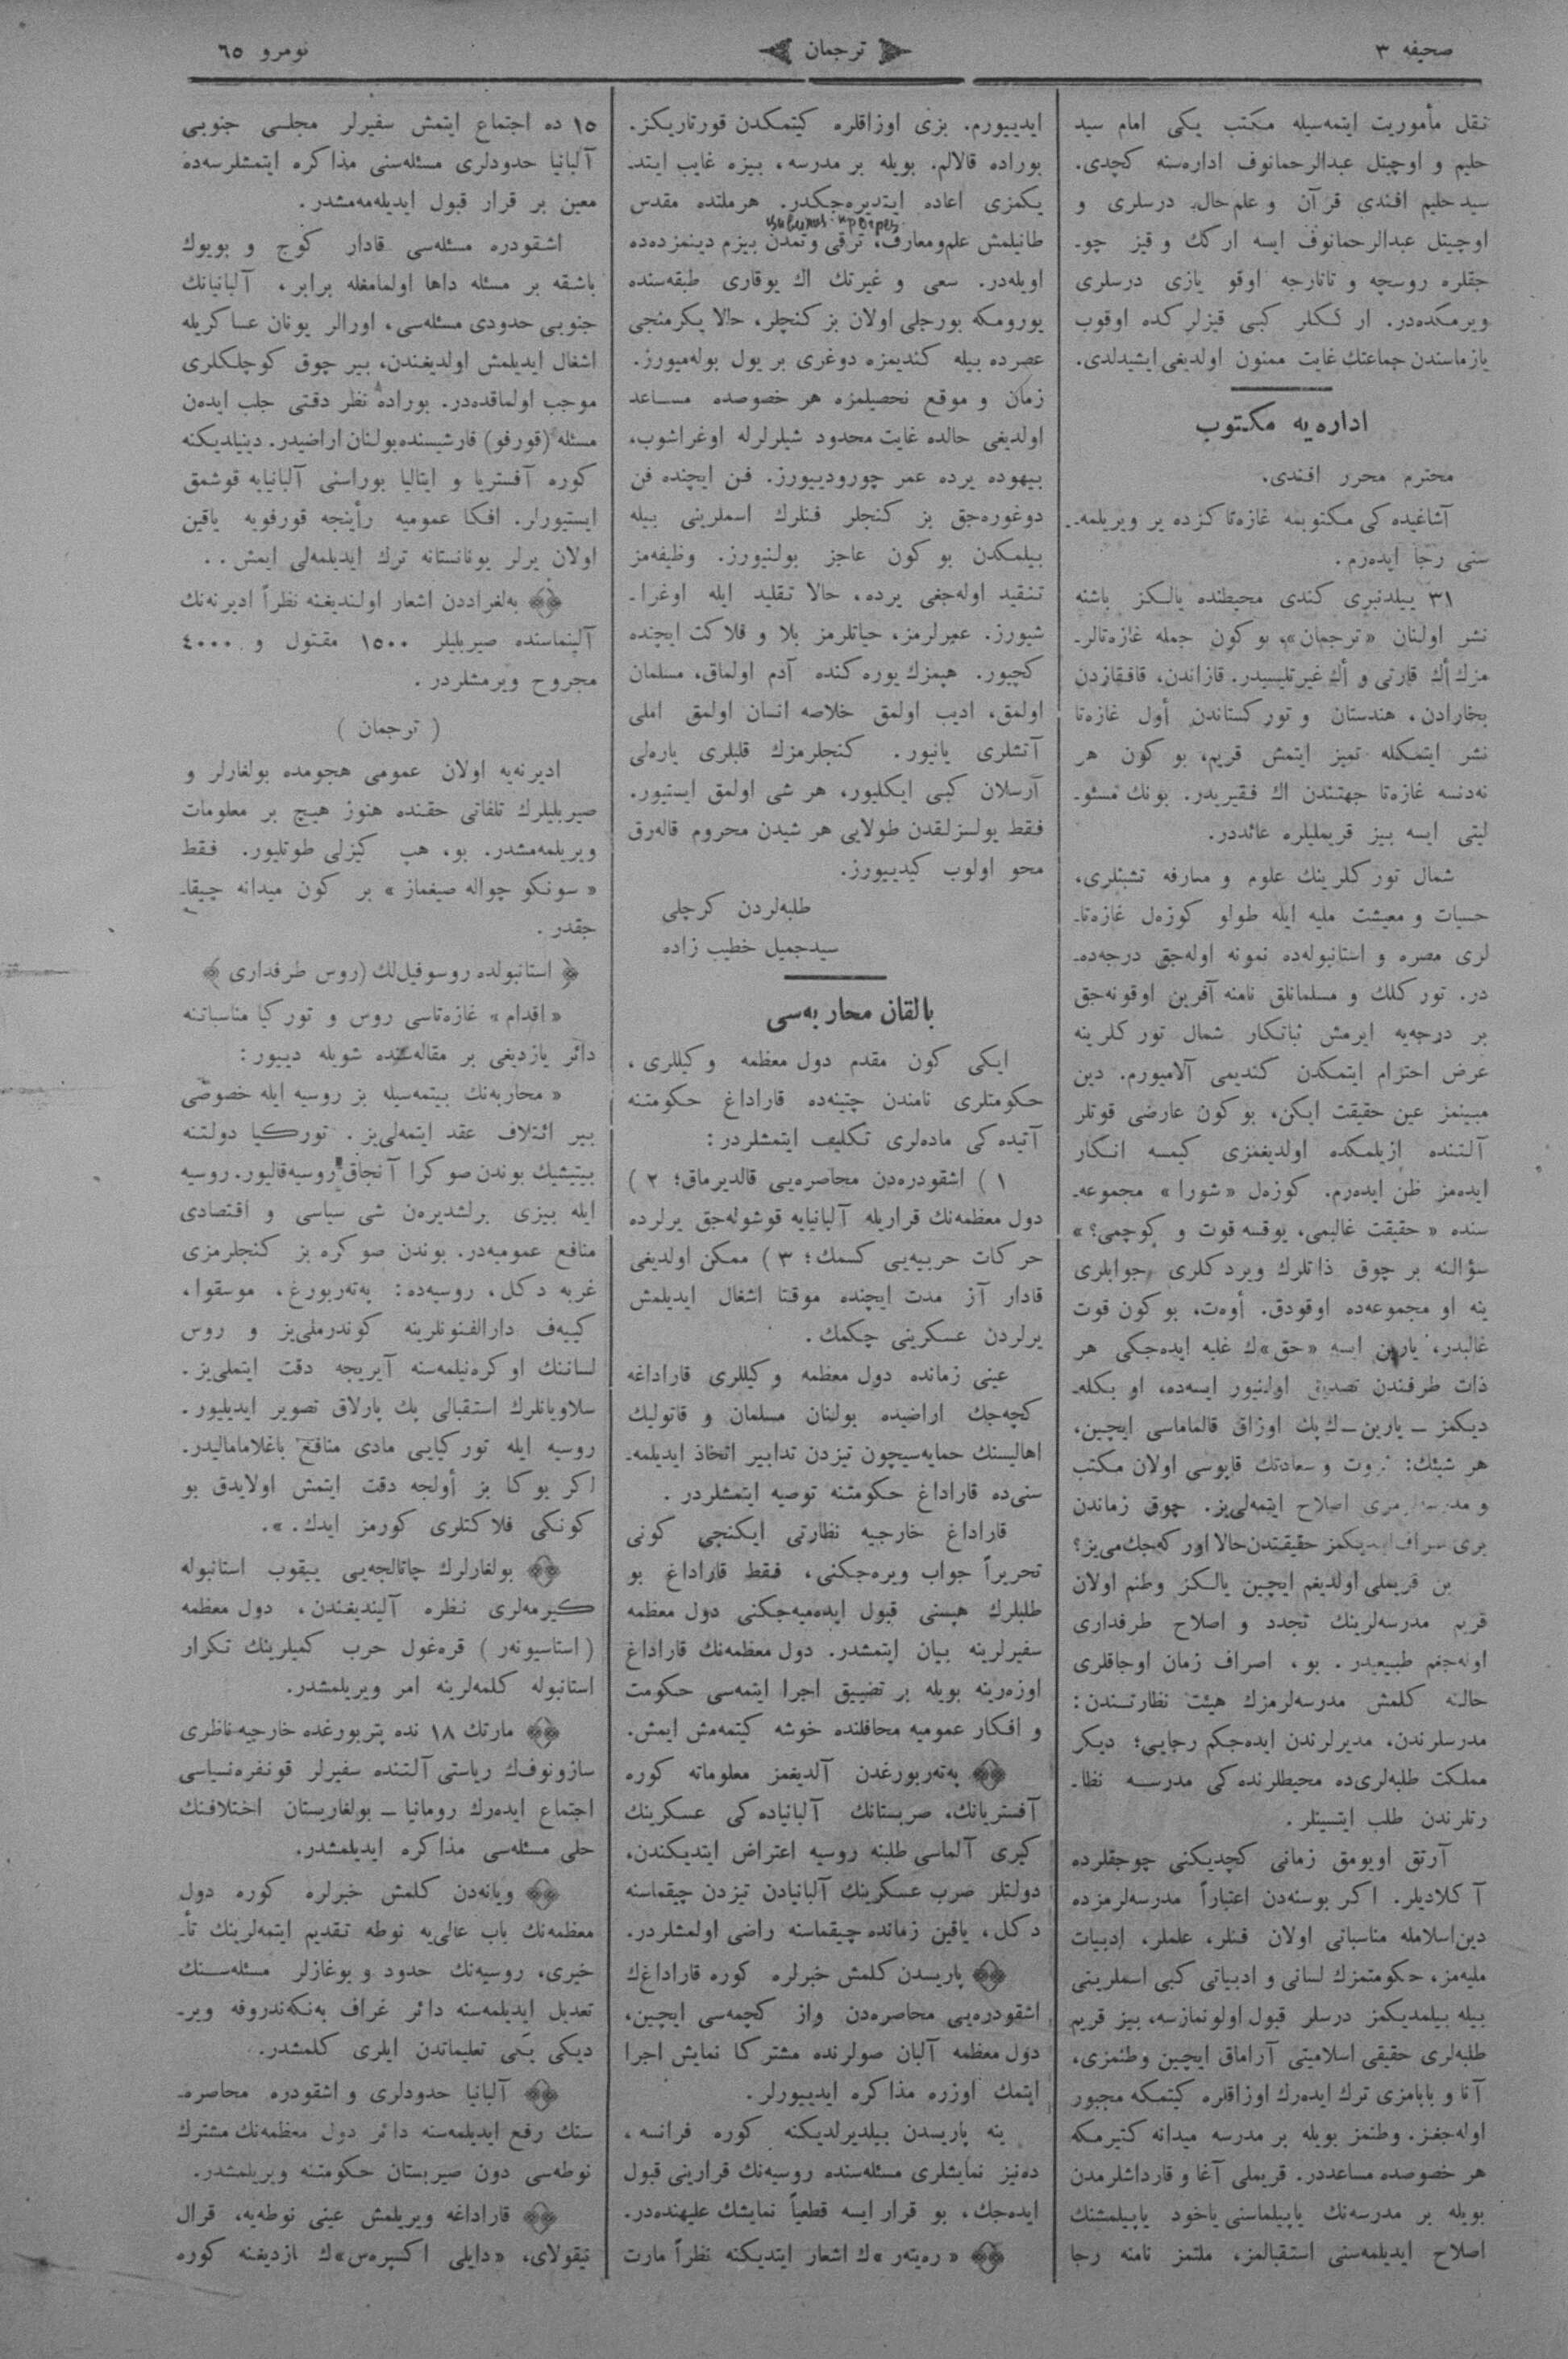 صحیفه ٣
ترجمان
نومرو ٦٥
نقل مأموریت ایتمه‌سیله مکتب یکی امام سید
حلیم و اوچیتل عبدالرحمانوف اداره‌سنه کچدی.
سید حلیم افندی قرآن و علم حال درسلری و
اوچیتل عبدالرحمانوف ایسه ارکك و قیز چو-
جقلره روسچه و تاتارجه اوقو یازی درسلری
ویرمکده‌در. ارککلر کبی قیزلرکده اوقوب
یازماسندن جماعتك غایت ممنون اولدیغی ایشیدلدی.
اداره‌یه مکتوب
محترم محرر افندی.
آشاغیده‌کی مکتوبمه غازه‌تاکزده یر ویریلمه-
سنی رجا ایده‌رم.
٣١ ییلدنبری کندی محیطنده یالکز باشنه
نشر اولنان «ترجمان»، بوکون جمله غازه‌تالر-
مزك أك قارتی و أك غیرتلیسیدر. قازاندن، قافقازدن
بخارادن، هندستان و تورکستاندن أول غازه‌تا
نشر ایتمکله تمیز ایتمش قریم، بو کون هر
نه‌دنسه غازه‌تا جهتندن اك فقیریدر. بونك مسئو-
لیتی ایسه بیز قریملیلره عائددر.
شمال تورکلرینك علوم و معارفه تشبثلری،
حسیات و معیشت ملیه ایله طولو کوزه‌ل غازه‌تا-
لری مصره و استانبوله‌ده نمونه اوله‌جق درجه‌ده-
در. تورکلك و مسلمانلق نامنه آفرین اوقونه‌جق
بر درجه‌یه ایرمش ثباتکار شمال تورکلرینه
عرض احترام ایتمکدن کندیمی آلامیورم. دین
مبینمز عین حقیقت ایکن، بوکون عارضی قوتلر
آلتنده ازیلمکده اولدیغمزی کیمسه انکار
ایده‌مز ظن ایده‌رم. کوزه‌ل «شورا» مجموعه-
سنده «حقیقت غالبمی، یوقسه قوت و کوچمی؟»
سؤالنه بر چوق ذاتلرك ویردکلری جوابلری
ینه او مجموعه‌ده اوقودق. أوه‌ت، بوکون قوت
غالبدر، یارین ایسه «حق»ك غلبه ایده‌جکی هر
ذات طرفندن تصدیق اولنیور ایسه‌ده، او بکله-
دیکمز — یارین — ك پك اوزاق قالماماسی ایچین،
هر شیئك: ثروت و سعادتك قاپوسی اولان مکتب
و مدرسه‌لرمزی اصلاح ایتمه‌لی‌یز. چوق زماندن
بری حقیقتدن حالا اورکه‌جك می‌یز؟
بن قریملی اولدیغم ایچین یالکز وطنم اولان
قریم مدرسه‌لرینك تجدد و اصلاح طرفداری
اوله‌جغم طبیعیدر. بو، اصراف زمان اوجاقلری
حالنه کلمش مدرسه‌لرمزك هیئت نظارتندن:
مدرسلرندن، مدیرلرندن ایده‌جکم رجایی؛ دیکر
مملکت طلبه‌لری‌ده محیطلرنده‌کی مدرسه نظا-
رتلرندن طلب ایتسینلر.
آرتق اویومق زمانی کچدیکنی چوجقلرده
آکلادیلر. اکر بوسنه‌دن اعتباراً مدرسه‌لرمزده
دین‌اسلامله مناسباتی اولان فنلر، علملر، ادبیات
ملیه‌مز، حکومتمزك لسانی و ادبیاتی کبی اسملرینی
بیله بیلمدیکمز درسلر قبول اولونمازسه، بیز قریم
طلبه‌لری حقیقی اسلامیتی آراماق ایچین وطنمزی،
آنا و بابامزی ترك ایده‌رك اوزاقلره کیتمکه مجبور
اوله‌جغز. وطنمز بویله بر مدرسه میدانه کتیرمکه
هر خصوصده مساعددر. قریملی آغا و قارداشلرمدن
بویله بر مدرسه‌نك یاپیلماسنی یاخود یاپیلمشنك
اصلاح ایدیلمه‌سنی استقبالمز، ملتمز نامنه رجا
ایدییورم. بزی اوزاقلره کیتمکدن قورتاریکز.
بوراده قالالم. بویله بر مدرسه، بیزه غایب ایتد-
یکمزی اعاده ایتدیره‌جکدر. هرملتده مقدس
طانیلمش علم‌ومعارف، ترقی و تمدن بیزم دینمزده‌ده
اویله‌در. سعی و غیرتك اك یوقاری طبقه‌سنده
یورومکه بورجلی اولان بز کنجلر، حالا یکرمنجی
عصرده بیله کندیمزه دوغری بر یول بوله‌میورز.
زمان و موقع تحصیلمزه هر خصوصده مساعد
اولدیغی حالده غایت محدود شیلرلرله اوغراشوب،
بیهوده یرده عمر چورودییورز. فن ایچنده فن
دوغوره‌جق بز کنجلر فنلرك اسملرینی بیله
بیلمکدن بوکون عاجز بولنیورز. وظیفه‌مز
تنقید اوله‌جغی یرده، حالا تقلید ایله اوغرا-
شیورز. عمرلرمز، حیاتلرمز بلا و فلاکت ایچنده
کچیور. هپمزك یوره‌کنده آدم اولماق، مسلمان
اولمق، ادیب اولمق خلاصه انسان اولمق املی
آتشلری یانیور. کنجلرمزك قلبلری یاره‌لی
آرسلان کبی ایکلیور، هر شی اولمق ایستیور.
فقط یولسزلقدن طولایی هر شیدن محروم قاله‌رق
محو اولوب کیدییورز.
طلبه‌لردن کرچلی
سیدجمیل خطیب زاده
بالقان محاربه‌سی
ایکی کون مقدم دول معظمه وکیللری،
حکومتلری نامندن چتینه‌ده قاراداغ حکومتنه
آتیده‌کی ماده‌لری تکلیف ایتمشلردر:
١) اشقودره‌دن محاصره‌یی قالدیرماق؛ ٢)
دول معظمه‌نك قراریله آلبانیایه قوشوله‌جق یرلرده
حرکات حربیه‌یی کسمك؛ ٣) ممکن اولدیغی
قادار آز مدت ایچنده موقتا اشغال ایدیلمش
یرلردن عسکرینی چکمك.
عینی زمانده دول معظمه وکیللری قاراداغه
کچه‌جك اراضیده بولنان مسلمان و قاتولیك
اهالیسنك حمایه‌سیچون تیزدن تدابیر اتخاذ ایدیلمه-
سنی‌ده قاراداغ حکومتنه توصیه ایتمشلردر.
قاراداغ خارجیه نظارتی ایکنجی کونی
تحریراً جواب ویره‌جکنی، فقط قاراداغ بو
طلبلرك هپسنی قبول ایده‌میه‌جکنی دول معظمه
سفیرلرینه بیان ایتمشدر. دول معظمه‌نك قاراداغ
اوزه‌رینه بویله بر تضییق اجرا ایتمه‌سی حکومت
و افکار عمومیه محافلنده خوشه کیتمه‌مش ایمش.
په‌ته‌ربورغدن آلدیغمز معلوماته کوره
آفستریانك، صربستانك آلبانیاده‌کی عسکرینك
کیری آلماسی طلبنه روسیه اعتراض ایتدیکندن،
دولتلر صرب عسکرینك آلبانیادن تیزدن چیقماسنه
دکل، یاقین زمانده چیقماسنه راضی اولمشلردر.
پاریسدن کلمش خبرلره کوره قاراداغ‌ك
اشقودره‌یی محاصره‌دن واز کچمه‌سی ایچین،
دول معظمه آلبان صولرنده مشترکا نمایش اجرا
ایتمك اوزره مذاکره ایدییورلر.
ینه پاریسدن بیلدیرلدیکنه کوره فرانسه،
ده‌نیز نمایشلری مسئله‌سنده روسیه‌نك قرارینی قبول
ایده‌جك، بو قرار ایسه قطعیاً نمایشك علیهنده‌در.
«ره‌یته‌ر»ك اشعار ایتدیکنه نظراً مارت
١٥ ده اجتماع ایتمش سفیرلر مجلسی جنوبی
آلبانیا حدودلری مسئله‌سنی مذاکره ایتمشلرسه‌ده
معین بر قرار قبول ایدیله‌مه‌مشدر.
اشقودره مسئله‌سی قادار کوج و بویوك
باشقه بر مسئله داها اولمامغله برابر، آلبانیانك
جنوبی حدودی مسئله‌سی، اورالر یونان عساکریله
اشغال ایدیلمش اولدیغندن، بیر چوق کوچلکلری
موجب اولماقده‌در. بوراده نظر دقتی جلب ایده‌ن
مسئله (قورفو) قارشیسنده‌بولنان اراضیدر. دینیلدیکنه
کوره آفستریا و ایتالیا بوراسنی آلبانیایه قوشمق
ایستیورلر. افکا عمومیه رأینجه قورفویه یاقین
اولان یرلر یونانستانه ترك ایدیلمه‌لی ایمش..
به‌لغراددن اشعار اولندیغنه نظراً ادیرنه‌نك
آلینماسنده صیربلیلر ١٥٠٠ مقتول و ٤٠٠٠
مجروح ویرمشلردر.
(ترجمان)
ادیرنه‌یه اولان عمومی هجومده بولغارلر و
صیربلیلرك تلفاتی حقنده هنوز هیچ بر معلومات
ویریلمه‌مشدر. بو، هپ کیزلی طوتلیور. فقط
«سونکو چواله صیغماز» بر کون میدانه چیقا-
جقدر.
استانبولده روسوفیل‌لك (روس طرفداری)
«اقدام» غازه‌تاسی روس و تورکیا مناسباتنه
دائر یازدیغی بر مقاله‌سنده شویله دییور:
«محاربه‌نك بیتمه‌سیله بز روسیه ایله خصوصی
بیر ائتلاف عقد ایتمه‌لی‌یز. تورکیا دولتنه
بیتیشیك بوندن صوکرا آنجاق روسیه‌قالیور. روسیه
ایله بیزی برلشدیره‌ن شی سیاسی و اقتصادی
منافع عمومیه‌در. بوندن صوکره بز کنجلرمزی
غربه دکل، روسیه‌ده: په‌ته‌ربورغ، موسقوا،
کییه‌ف دارالفنونلرینه کوندرملی‌یز و روس
لساننك اوکره‌نیلمه‌سنه آیریجه دقت ایتملی‌یز.
سلاویانلرك استقبالی پك پارلاق تصویر ایدیلیور.
روسیه ایله تورکیایی مادی منافع باغلامامالیدر.
اکر بوکا بز أولجه دقت ایتمش اولایدق بو
کونکی فلاکتلری کورمز ایدك.».
بولغارلرك چاتالجه‌یی ییقوب استانبوله
کیرمه‌لری نظره آلیندیغندن، دول معظمه
(استاسیونه‌ر) قره‌غول حرب کمیلرینك تکرار
استانبوله کلمه‌لرینه امر ویریلمشدر.
مارتك ١٨ نده پتربورغده خارجیه‌ناظری
سازونوف‌ك ریاستی آلتنده سفیرلر قونفره‌نسیاسی
اجتماع ایده‌رك رومانیا — بولغاریستان اختلافنك
حلی مسئله‌سی مذاکره ایدیلمشدر.
ویانه‌دن کلمش خبرلره کوره دول
معظمه‌نك باب عالی‌یه نوطه تقدیم ایتمه‌لرینك تأ-
خیری، روسیه‌نك حدود و بوغازلر مسئله‌سنك
تعدیل ایدیلمه‌سنه دائر غراف به‌نکه‌ندروفه ویر-
دیکی یکی تعلیماتدن ایلری کلمشدر.
آلبانیا حدودلری و اشقودره محاصره-
سنك رفع ایدیلمه‌سنه دائر دول معظمه‌نك مشترك
نوطه‌سی دون صیربستان حکومتنه ویریلمشدر.
قاراداغه ویریلمش عینی نوطه‌یه، قرال
نیقولای، «دایلی اکسپره‌س»ك یازدیغنه کوره